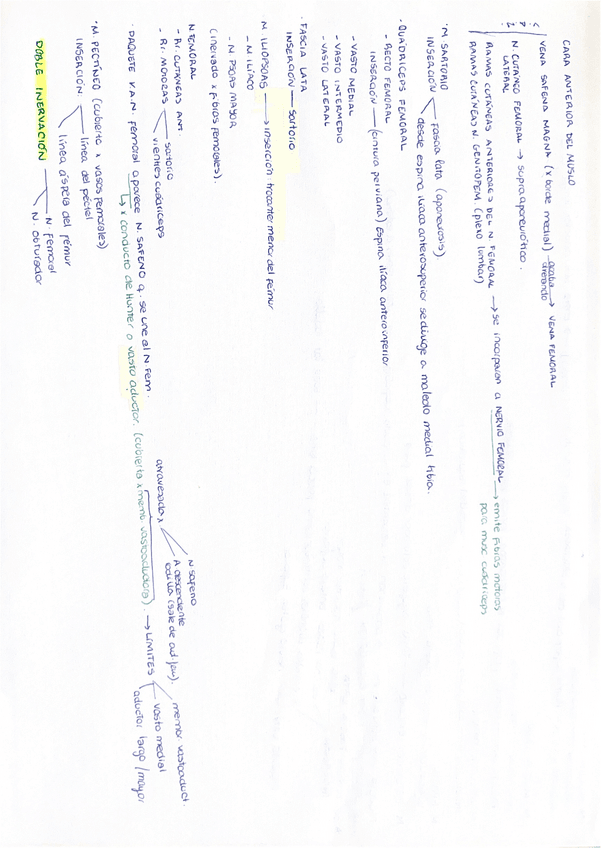 CARA ANTERIOR DEL MUSLO
VENA SAFENA MAGNA (x borde medial) acaba drenando → VENA FEMORAL
N CUTÁNEO FEMORAL → supraaponeurótico.
LATERAL
RAMAS CUTÁNEAS ANTERIORES DEL N FEMORAL → se incorporan a NERVIO FEMORAL → emite fibras motoras
RAMAS CUTÁNEAS N. GENITOFEM (plexo lumbar) para musc cuádriceps
·M. SARTORIO
INSERCIÓN fascia lata (aponeurosis)
desde espina ilíaca anterosuperior se dirige a maleolo medial tibia.
·QUÁDRICEPS FEMORAL
- RECTO FEMORAL
INSERCIÓN — (cintura pelviana) Espina ilíaca anteroinferior
- VASTO MEDIAL
- VASTO INTERMEDIO
- VASTO LATERAL
·FASCIA LATA
INSERCIÓN — sartorio
M. ILIOPSOAS → inserción: trocanter menor del fémur
- M ILÍACO
- M PSOAS MAYOR
(inervado x fibras femorales).
N FEMORAL
- Rr. CUTÁNEAS ANT.
- Rr. MOTORAS sartorio
vientres cuádriceps
·PAQUETE V.A.N. femoral aparece N. SAFENO q. se une al N Fem.
↳ x conducto de Hunter o vasto aductor. (cubierto x memb vastoaductora). → LÍMITES
atravesada x N safeno
A descendente rodilla (sale de
membr vastoaduct.
vasto medial
aductor largo/mayor
·M. PECTÍNEO (cubierto x vasos femorales)
INSERCIÓN línea del péctel
línea áspera del fémur
DOBLE INERVACIÓN N. femoral
N. obturador